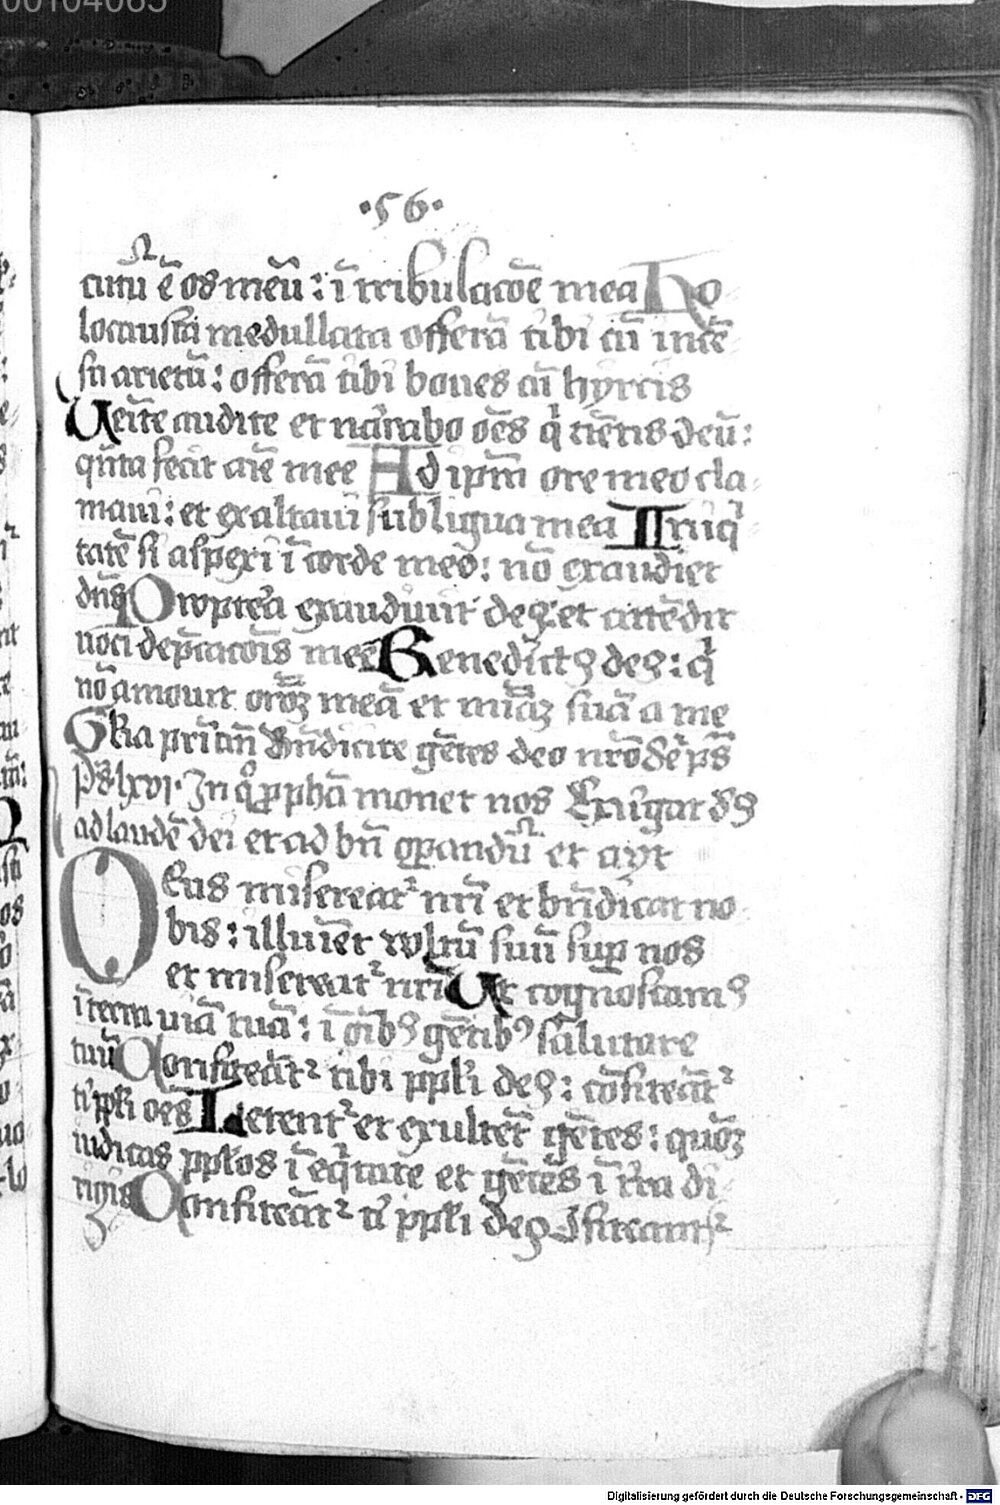 00104065
·56·
cutū ē os meū : ī tribulacōe mea Ho
locausta medullata offerā tibi cū incē
su arietū : offerā tibi boues cū hyrcis
Ueīte audite et narrabo oēs q̇ tīetis deū :
quāta fecit aīe mee Ad ip̄m ore meo cla
maui : et exaltaui sub ligua mea Iniq̇
tatē si aspexi ī corde meō : nō exaudiet
dn̄s Propterea exaudiuit deꝰ et attēdit
uoci dep̄cacōis mee Benedictꝰ deꝰ : q̇
nō amouit orōeꝫ meā et mīāꝫ suā a me
bn̄dicite gētes deo nrō
ps̄ lxvi · In q° ꝓphā monet nos
ad laudē dei et ad bn̄ opandū et ayt
Deus misereat᷑ nrī et bn̄dicat no
bis : illuīet vultū suū suꝑ nos
et misereat᷑ nrī Ut cognoscamꝰ
ī terra uiā tuā : ī oībꝰ gētibꝰ salutare
tuū Confiteāt᷑ tibi ppl̄i deꝰ : cōfiteāt᷑
t' ppl̄i oēs Letent᷑ et exultēt gētes : quōꝫ
iudicas ppl̄os ī eq̇tate et gētēs ī t̄ra di
rigis Confiteāt᷑ t' ppl̄i deꝰ 
Digitalisierung gefördert durch die Deutsche Forschungsgemeinschaft - DFG